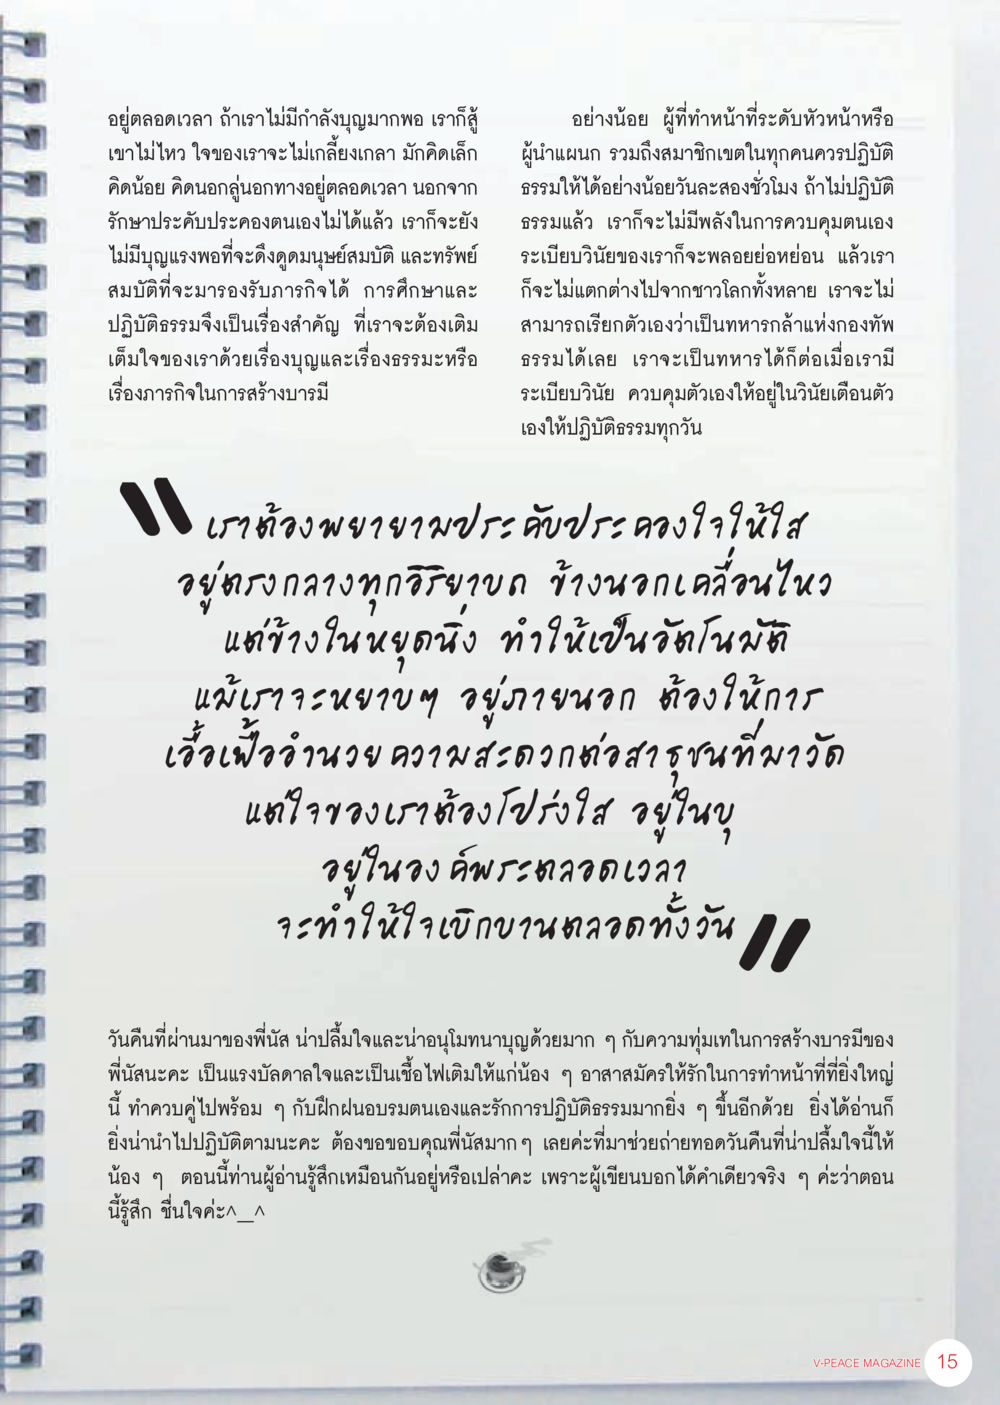 อยู่ตลอดเวลา ถ้าเราไม่มีกำลังบุญมากพอ เราก็สู้
เขาไม่ไหว ใจของเราจะไม่เกลี้ยงเกลา มักคิดเล็ก
คิดน้อย คิดนอกลู่นอกทางอยู่ตลอดเวลา นอกจาก
รักษาประคับประคองตนเองไม่ได้แล้ว เราก็จะยัง
ไม่มีบุญแรงพอที่จะดึงดูดมนุษย์สมบัติ และทรัพย์
สมบัติที่จะมารองรับภารกิจได้ การศึกษาและ
ปฏิบัติธรรมจึงเป็นเรื่องสำคัญ ที่เราจะต้องเติม
เต็มใจของเราด้วยเรื่องบุญและเรื่องธรรมะหรือ
เรื่องภารกิจในการสร้างบารมี
อย่างน้อย ผู้ที่ทำหน้าที่ระดับหัวหน้าหรือ
ผู้นำแผนก รวมถึงสมาชิกเขตในทุกคนควรปฏิบัติ
ธรรมให้ได้อย่างน้อยวันละสองชั่วโมง ถ้าไม่ปฏิบัติ
ธรรมแล้ว เราก็จะไม่มีพลังในการควบคุมตนเอง
ระเบียบวินัยของเราก็จะพลอยย่อหย่อน แล้วเรา
ก็จะไม่แตกต่างไปจากชาวโลกทั้งหลาย เราจะไม่
สามารถเรียกตัวเองว่าเป็นทหารกล้าแห่งกองทัพ
ธรรมได้เลย เราจะเป็นทหารได้ก็ต่อเมื่อเรามี
ระเบียบวินัย ควบคุมตัวเองให้อยู่ในวินัยเตือนตัว
เองให้ปฏิบัติธรรมทุกวัน
"เราต้องพยายามประคับประคองใจให้ใส
อยู่ตรงกลางทุกอิริยาบถ ข้างนอกเคลื่อนไหว
แต่ข้างในหยุดนิ่ง ทำให้เป็นอัตโนมัติ
แม้เราจะหยาบๆ อยู่ภายนอก ต้องให้การ
เอื้อเฟื้ออำนวยความสะดวกต่อสาธุชนที่มาวัด
แต่ใจของเราต้องโปร่งใส อยู่ในบุ
อยู่ในองค์พระตลอดเวลา
จะทำให้ใจเบิกบานตลอดทั้งวัน"
วันคืนที่ผ่านมาของพี่นัส น่าปลื้มใจและน่าอนุโมทนาบุญด้วยมาก ๆ กับความทุ่มเทในการสร้างบารมีของ
พี่นัสนะคะ เป็นแรงบัลดาลใจและเป็นเชื้อไฟเติมให้แก่น้อง ๆ อาสาสมัครให้รักในการทำหน้าที่ที่ยิ่งใหญ่
นี้ ทำควบคู่ไปพร้อม ๆ กับฝึกฝนอบรมตนเองและรักการปฏิบัติธรรมมากยิ่ง ๆ ขึ้นอีกด้วย ยิ่งได้อ่านก็
ยิ่งน่านำไปปฏิบัติตามนะคะ ต้องขอขอบคุณพี่นัสมากๆ เลยค่ะที่มาช่วยถ่ายทอดวันคืนที่น่าปลื้มใจนี้ให้
น้อง ๆ ตอนนี้ท่านผู้อ่านรู้สึกเหมือนกันอยู่หรือเปล่าคะ เพราะผู้เขียนบอกได้คำเดียวจริง ๆ ค่ะว่าตอน
นี้รู้สึก ชื่นใจค่ะ^__^
V-PEACE MAGAZINE 15